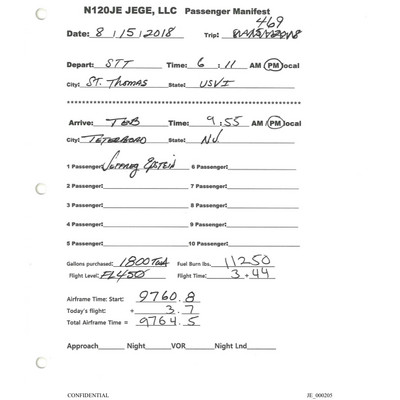 N120JE JEGE, LLC Passenger Manifest
469
Date: 8 / 15 / 2018 Trip:
Depart: STT Time: 6 : 11 AM / PM local
City: ST. Thomas State: USVI
Arrive: TEB Time: 9 : 55 AM / PM local
City: TETERBORO State: NJ
1 Passenger: Jeffrey Epstein 6 Passenger:
2 Passenger: 7 Passenger:
3 Passenger: 8 Passenger:
4 Passenger: 9 Passenger:
5 Passenger: 10 Passenger:
Gallons purchased: 1800 Fuel Burn lbs. 11250
Flight Level: FL450 Flight Time: 3+44
Airframe Time: Start: 9760.8
Today's flight: + 3.7
Total Airframe Time = 9764.5
Approach Night VOR Night Lnd
CONFIDENTIAL JE_000205